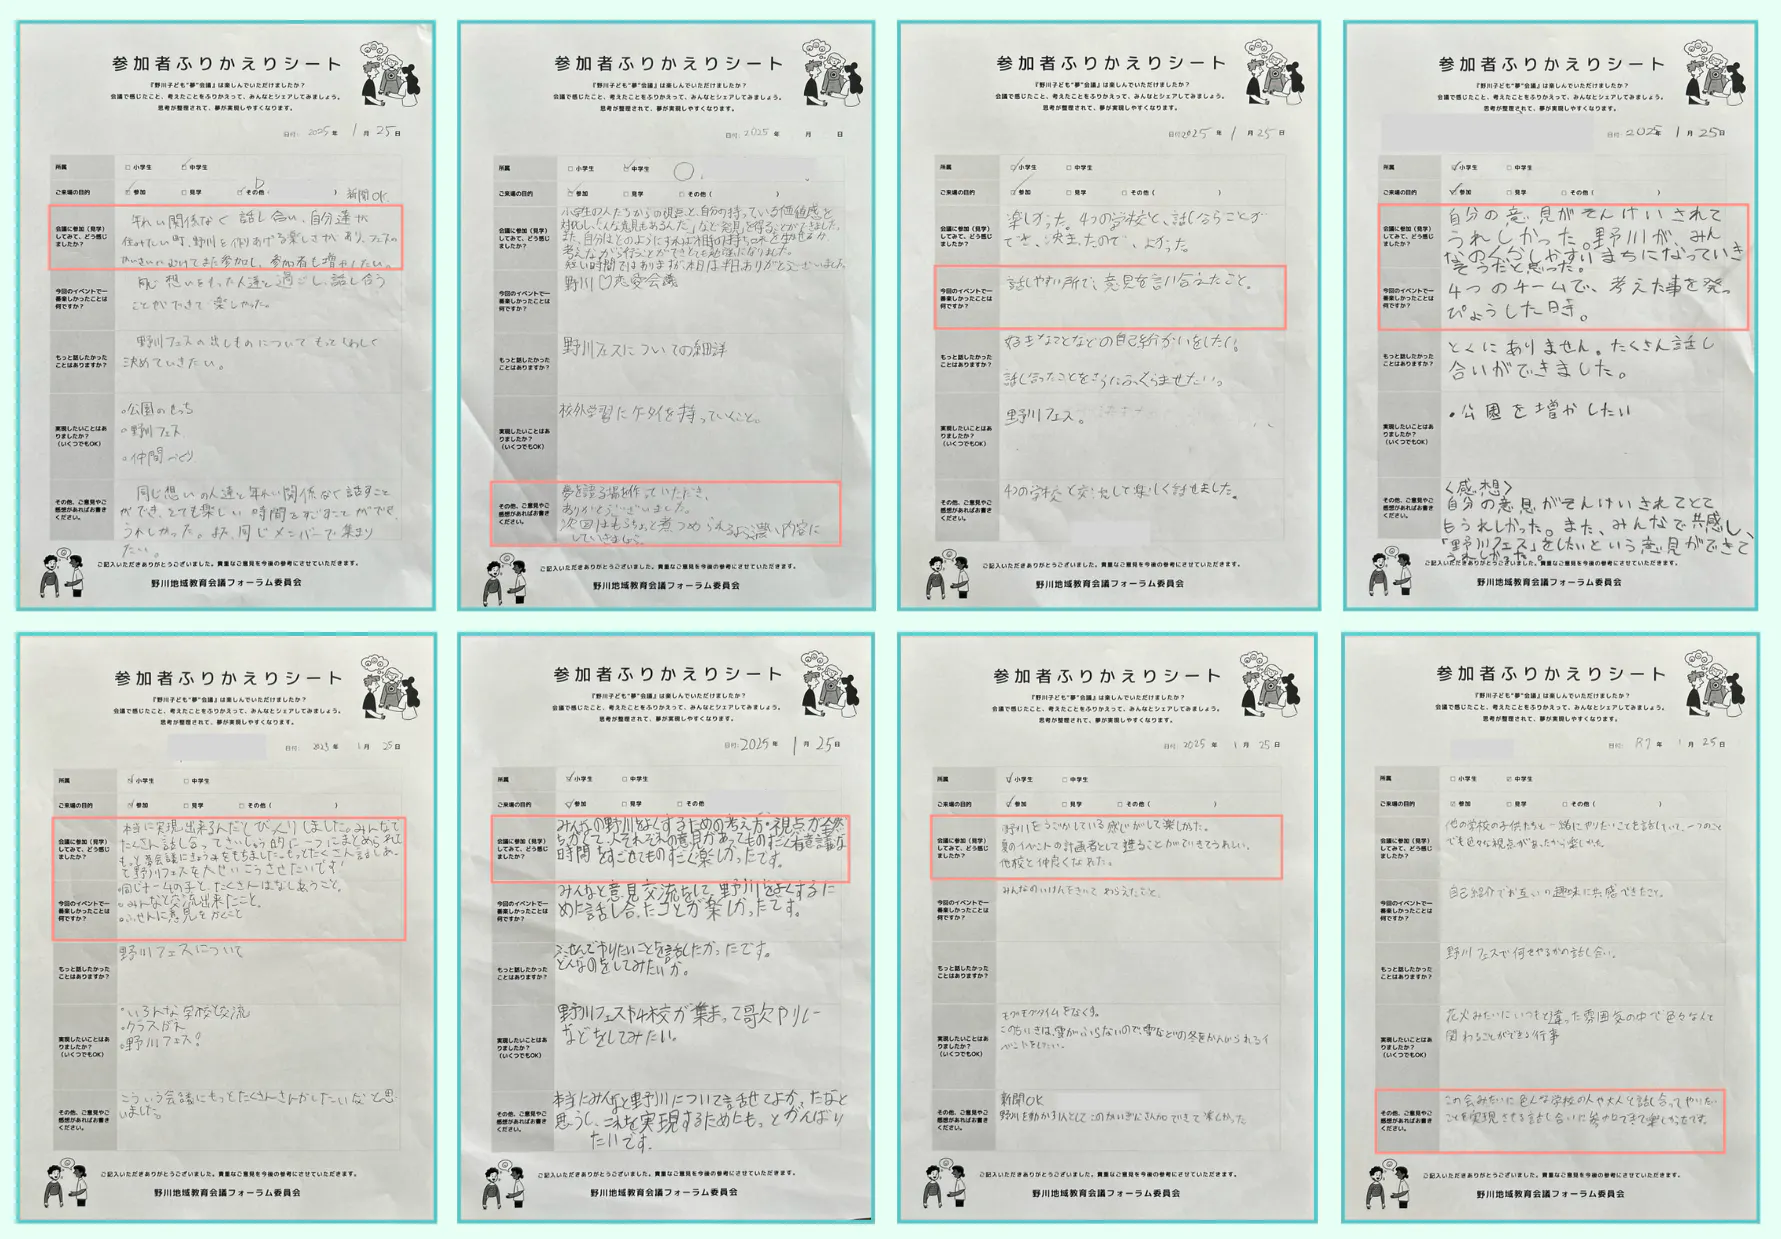 参加者ふりかえりシート
『野川子ども“夢”会議』は楽しんでいただけましたか?
会議で感じたこと、考えたことをふりかえって、みんなとシェアしてみましょう。
思考が整理されて、夢が実現しやすくなります。
日付: 2025年 1月 25日
所属 □小学生 □中学生
ご来場の目的 □参加 □見学 □その他( )
新聞OK
会議に参加(見学)してみて、どう感じましたか?
年れい関係なく話し合い、自分達が
住みたい町、野川を作りあげる楽しさがあり、フェスの
かいさいにむけてまた参加し、参加者も増やしたい。
今回のイベントで一番楽しかったことは何ですか?
同じ想いをもった人達と過ごし、話し合う
ことができて楽しかった。
もっと話したかったことはありますか?
野川フェスの出しものについてもっとくわしく
決めていきたい。
実現したいことはありましたか?(いくつでもOK)
・公園のせっち
・野川フェス
・仲間づくり
その他、ご意見やご感想があればお書きください。
同じ想いの人達と年れい関係なく話すこと
ができ、とても楽しい時間をすごすことができ、
うれしかった。また、同じメンバーで集まり
たい。
ご記入いただきありがとうございました。貴重なご意見を今後の参考にさせていただきます。
野川地域教育会議フォーラム委員会
参加者ふりかえりシート
『野川子ども“夢”会議』は楽しんでいただけましたか?
会議で感じたこと、考えたことをふりかえって、みんなとシェアしてみましょう。
思考が整理されて、夢が実現しやすくなります。
日付: 2025年 月 日
所属 □小学生 □中学生
ご来場の目的 □参加 □見学 □その他( )
会議に参加(見学)してみて、どう感じましたか?
小学生の人たちからの視点と、自分の持っている価値感と
対比し、「こんな意見もあるんだ」など発見を得ることができました。
また、自分はどのようにすれば
考えながら行うことができとても勉強になりました。
短い時間ではありますが、本日は半日ありがとうございました。
今回のイベントで一番楽しかったことは何ですか?
野川♡恋愛会議
もっと話したかったことはありますか?
野川フェスについての詳細
実現したいことはありましたか?(いくつでもOK)
校外学習にケータイを持っていくこと。
その他、ご意見やご感想があればお書きください。
夢を語る場を作っていただき、
ありがとうございました。
次回はもうちょっと煮つめられるよう濃い内容に
していきましょう。
ご記入いただきありがとうございました。貴重なご意見を今後の参考にさせていただきます。
野川地域教育会議フォーラム委員会
参加者ふりかえりシート
『野川子ども“夢”会議』は楽しんでいただけましたか?
会議で感じたこと、考えたことをふりかえって、みんなとシェアしてみましょう。
思考が整理されて、夢が実現しやすくなります。
日付: 2025年 1月 25日
所属 □小学生 □中学生
ご来場の目的 □参加 □見学 □その他( )
会議に参加(見学)してみて、どう感じましたか?
楽しかった。4つの学校と、話し合うことが
でき、決まったので、よかった。
今回のイベントで一番楽しかったことは何ですか?
話しやすい所で、意見を言い合えたこと。
もっと話したかったことはありますか?
好きなことなどの自己紹かいをしたい。
話し合ったことをさらにふくらませたいっ
実現したいことはありましたか?(いくつでもOK)
野川フェス。
その他、ご意見やご感想があればお書きください。
4つの学校と交流して楽しく話せました。
ご記入いただきありがとうございました。貴重なご意見を今後の参考にさせていただきます。
野川地域教育会議フォーラム委員会
参加者ふりかえりシート
『野川子ども“夢”会議』は楽しんでいただけましたか?
会議で感じたこと、考えたことをふりかえって、みんなとシェアしてみましょう。
思考が整理されて、夢が実現しやすくなります。
2025年 1月 25日
所属 □小学生 □中学生
ご来場の目的 □参加 □見学 □その他( )
会議に参加(見学)してみて、どう感じましたか?
自分の意見がそんけいされて
うれしかった。野川が、みん
なのくらしやすいまちになっていき
そうだと思った。
今回のイベントで一番楽しかったことは何ですか?
4つのチームで、考えた事を発っ
ぴょうした時。
もっと話したかったことはありますか?
とくにありません。たくさん話し
合いができました。
実現したいことはありましたか?(いくつでもOK)
・公園を増かしたい
その他、ご意見やご感想があればお書きください。
〈感想〉
自分の意見がそんけいされてとて
もうれしかった。また、みんなで共感し、
「野川フェス」をしたいという意見ができて
うれしかった。
ご記入いただきありがとうございました。貴重なご意見を今後の参考にさせていただきます。
野川地域教育会議フォーラム委員会
参加者ふりかえりシート
『野川子ども“夢”会議』は楽しんでいただけましたか?
会議で感じたこと、考えたことをふりかえって、みんなとシェアしてみましょう。
思考が整理されて、夢が実現しやすくなります。
日付: 2025年 1月 25日
所属 □小学生 □中学生
ご来場の目的 □参加 □見学 □その他( )
会議に参加(見学)してみて、どう感じましたか?
本当に実現出来るんだとびっくりしました。みんなで
たくさん話し合ってさいしゅう的に一つにまとめられて
もっと夢会議にきょうみをもちました。もっとたくさん話しあっ
て野川フェスを大せいこうさせたいです
今回のイベントで一番楽しかったことは何ですか?
・同じチームの子と、たくさんはなしあうこと。
・みんなと交流出来たこと。
・ふせんに意見をかくこと
もっと話したかったことはありますか?
野川フェスについて
実現したいことはありましたか?(いくつでもOK)
・いろんな学校と交流
・クラスがえ
・野川フェス!
その他、ご意見やご感想があればお書きください。
こういう会議にもっとたくさんさんかしたいなと思
いました。
ご記入いただきありがとうございました。貴重なご意見を今後の参考にさせていただきます。
野川地域教育会議フォーラム委員会
参加者ふりかえりシート
『野川子ども“夢”会議』は楽しんでいただけましたか?
会議で感じたこと、考えたことをふりかえって、みんなとシェアしてみましょう。
思考が整理されて、夢が実現しやすくなります。
日付: 2025年 1月 25日
所属 □小学生 □中学生
ご来場の目的 □参加 □見学 □その他
会議に参加(見学)してみて、どう感じましたか?
みんなの野川をよくするための考え方・視点が全然
ちがくて、人それぞれの意見があってものすごく有意義な
時間をすごせてものすごく楽しかったです。
今回のイベントで一番楽しかったことは何ですか?
みんなと意見交流をして、野川をよくするた
めに話し合ったことが楽しかったです。
もっと話したかったことはありますか?
ふせんでやりたいことを話したかったです。
どんなのをしてみたいか。
実現したいことはありましたか?(いくつでもOK)
野川フェスや4校が集まって歌やリレー
などをしてみたい。
その他、ご意見やご感想があればお書きください。
本当にみんなと野川について話せてよかったなと
思うし、これを実現するためにもっとがんばり
たいです。
ご記入いただきありがとうございました。貴重なご意見を今後の参考にさせていただきます。
野川地域教育会議フォーラム委員会
参加者ふりかえりシート
『野川子ども“夢”会議』は楽しんでいただけましたか?
会議で感じたこと、考えたことをふりかえって、みんなとシェアしてみましょう。
思考が整理されて、夢が実現しやすくなります。
日付: 2025年 1月 25日
所属 □小学生 □中学生
ご来場の目的 □参加 □見学 □その他( )
会議に参加(見学)してみて、どう感じましたか?
野川をうごかしている感じがして楽しかた。
夏のイベントの計画者として進ることができてうれしい。
他校と仲良くなれた。
今回のイベントで一番楽しかったことは何ですか?
みんなのいけんをきいてもらえたこと。
もっと話したかったことはありますか?
実現したいことはありましたか?(いくつでもOK)
モグモグタイムをなくす。
このちいきは、雪がふらないので、雪などの冬をかんじられるイ
ベントをしたい。
その他、ご意見やご感想があればお書きください。
新聞OK
野川を動かす1人としてこのかいぎにさんかできて楽しかった
ご記入いただきありがとうございました。貴重なご意見を今後の参考にさせていただきます。
野川地域教育会議フォーラム委員会
参加者ふりかえりシート
『野川子ども“夢”会議』は楽しんでいただけましたか?
会議で感じたこと、考えたことをふりかえって、みんなとシェアしてみましょう。
思考が整理されて、夢が実現しやすくなります。
日付: R7年 1月 25日
所属 □小学生 □中学生
ご来場の目的 □参加 □見学 □その他( )
会議に参加(見学)してみて、どう感じましたか?
他の学校の子供たちと一緒にやりたいことを話していて、一つのこと
でも色々な視点があったから楽しかった。
今回のイベントで一番楽しかったことは何ですか?
自己紹介でお互いの趣味に共感できたこと。
もっと話したかったことはありますか?
野川フェスで何をやるかの話し合い。
実現したいことはありましたか?(いくつでもOK)
花火みたいにいつもと違った雰囲気の中で色々な人と
関わることができる行事
その他、ご意見やご感想があればお書きください。
この会みたいに色んな学校の人や大人と話し合ってやりたい
ことを実現させる話し合いに参加できて楽しかったです。
ご記入いただきありがとうございました。貴重なご意見を今後の参考にさせていただきます。
野川地域教育会議フォーラム委員会